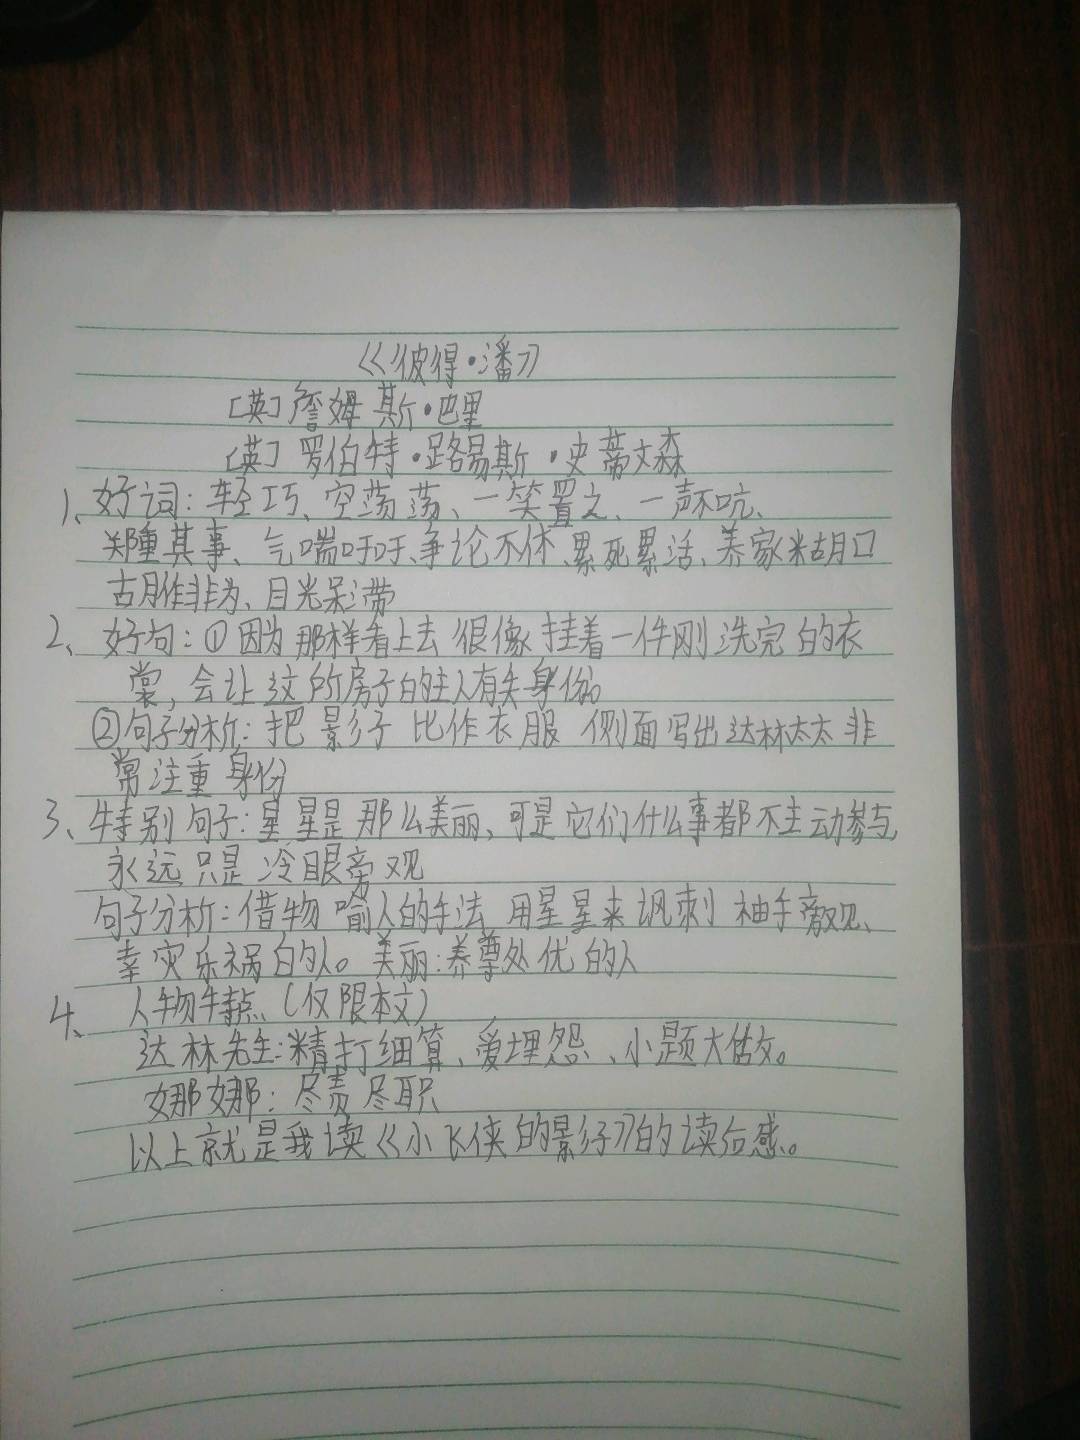 《彼得·潘》
[英]詹姆斯·巴里
[英]罗伯特·路易斯·史蒂文森
1、好词：轻巧、空荡荡、一笑置之、一声不吭、
郑重其事、气喘吁吁、争论不休、累死累活、养家糊口
胡作非为、目光呆滞
2、好句：①因为那样看上去很像挂着一件刚洗完的衣
裳，会让这所房子的主人有失身份。
②句子分析：把影子比作衣服 侧面写出达林太太非
常注重身份
3、特别句子：星星是那么美丽，可是它们什么事都不主动参与，
永远只是冷眼旁观
句子分析：借物喻人的手法 用星星来讽刺袖手旁观、
幸灾乐祸的人。美丽：养尊处优的人
4、人物特点（仅限本文）
达林先生：精打细算、爱埋怨、小题大做。
娜娜：尽责尽职
以上就是我读《小飞侠的影子》的读后感。